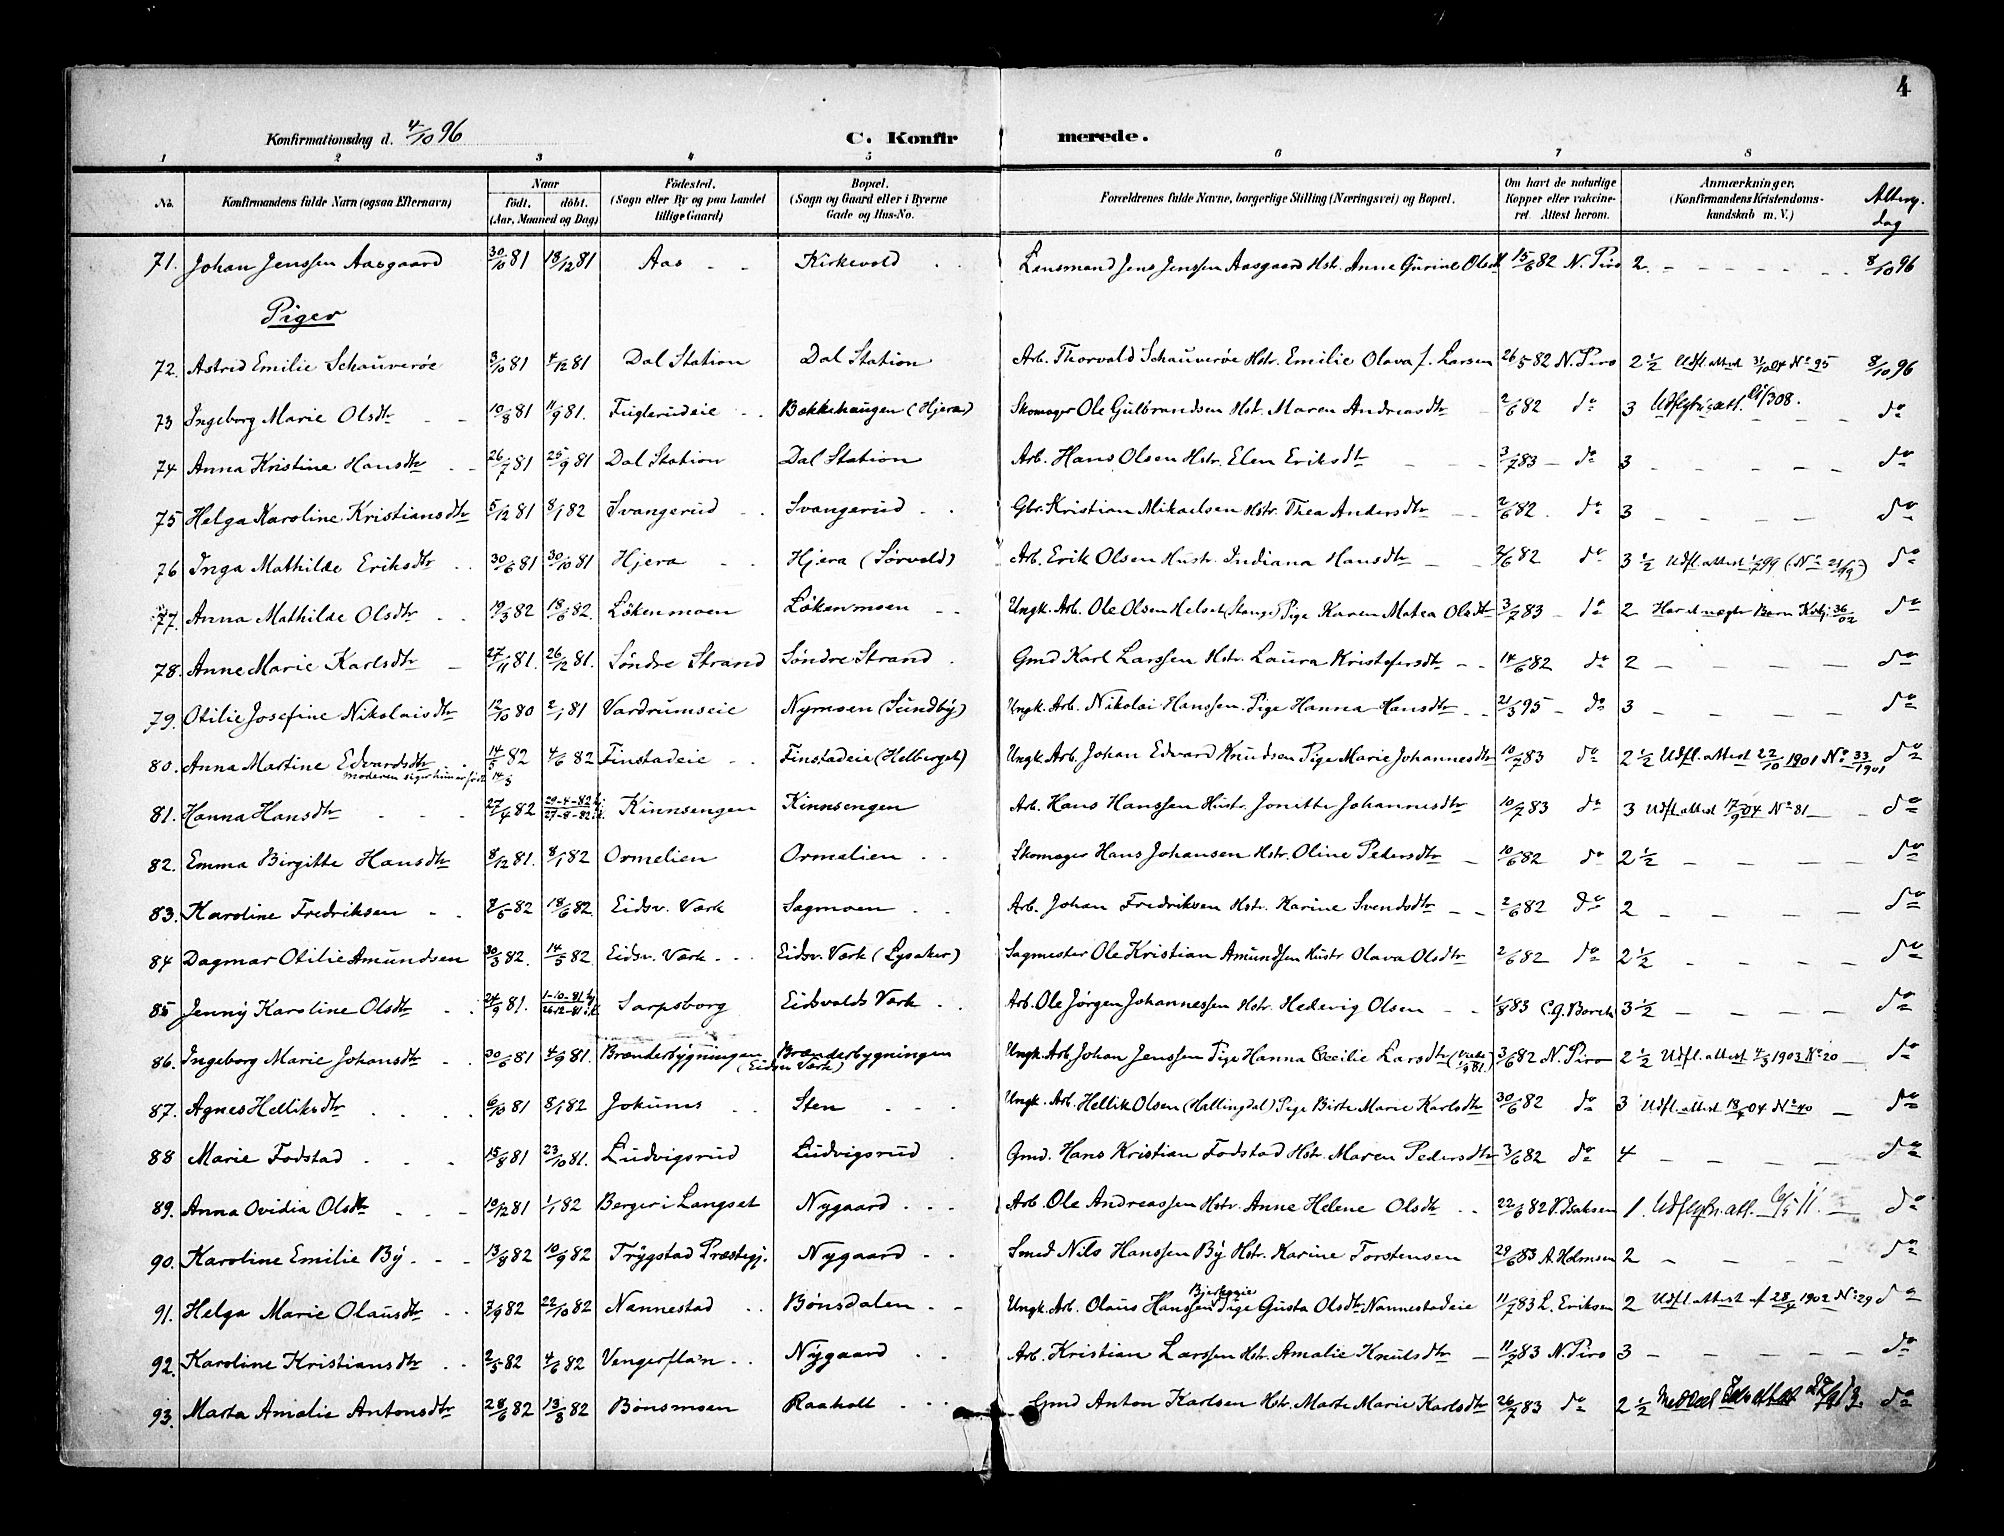 4
Konfirmationsdag d. 4/10 96 C. Konfirmerede.
1 2 3 4 5 6 7 8
No. Konfirmandens fulde Navn (ogsaa Efternavn) Naar født. døbt. (Aar, Maaned og Dag) Fødested. (Sogn eller By og paa Landet tillige Gaard) Bopæl. (Sogn og Gaard eller i Byerne Gade og Hus-No. Forældrenes fulde Navne, borgerlige Stilling (Næringsvei) og Bopæl. Om havt de naturlige Kopper eller vakcineret. Attest herom. Anmærkninger. (Konfirmandens Kristendomskundskab m. V.) Alterg. dag
71. Johan Jenssen Aasgaard 30/10 81 18/12 81 Aas Kirkevold Lensmand Jens Jenssen Aasgaard Hstr. Anne Gurine Olsdt 15/6 82 N. Piro 2 8/10 96
Piger
72. Astrid Emilie Schauverøe 3/10 81 4/12 81 Dal Station Dal Station Arb. Thorvald Schauverøe Hstr. Emilie Olava f. Larsen 26/5 82 N. Piro 2 1/2 Udfl. attest 31/10 04 No 95 8/10 96
73 Ingeborg Marie Olsdtr 10/8 81 11/9 81. Fuglerudeie Bakkehaugen (Hjera) Skomager Ole Gulbrandsen Hstr. Maren Andreasdtr 2/6 82 do 3 Udflytn.att. do
74 Anna Kristine Hansdtr 26/7 81 25/9 81 Dal Station Dal Station Arb. Hans Olsen Hstr. Elen Eriksdtr 3/7 83 do 3 do
75 Helga Karoline Kristiansdtr 5/12 81 8/1 82 Svangerud Svangerud Gbr. Kristian Mikaelsen Hstr. Thea Andersdtr 2/6 82. do 3 do
76 Inga Mathilde Eriksdtr 30/6 81 30/10 81 Hjera Hjera (Sørvold) Arb. Erik Olsen Hustr. Indiana Hansdtr 2/6 82 do 3 1/2 Udfl. attest 1/7 99 (No 21/19) do
77. Anna Mathilde Olsdtr 19/3 82 18/6 82. Løkenmoen Løkenmoen Ungk. Arb. Ole Olsen Helset (Stange) Pige Karen Matea Olsdtr 3/7 83 do 2 Har et uægte Barn do
78. Anne Marie Karlsdtr 27/11 81. 26/12 81. Søndre Strand Søndre Strand Gmd Karl Larssen Hstr. Laura Kristofersdtr 14/6 82 do 2 do
79. Otilie Josefine Nikolaisdtr 12/10 80 2/1 81 Vardrumseie Nymoen (Sundby) Ungk. Arb. Nikolai Hanssen. Pige Hanna Hansdtr 21/3 95 do 3 do
80. Anna Martine Edvardsdtr 14/5 82 4/6 82 Finstadeie Finstadeie (Helberget) Ungk Arb. Johan Edvard Knudsen Pige Marie Johannesdtr 10/7 83 do 2 1/2 Udfl. attest 22/10 1901 No 33/1901 do
moderen siger hun er født 14/3
81. Hanna Hansdtr 27/4 82 29-4-82 27-8-82 Kinnsengen Kinnsengen Arb. Hans Hanssen Hustr. Jonette Johannesdtr 10/7 83 do 3 Udfl. attest 17/9 04 No 81 do
82. Emma Birgitte Hansdtr 8/12 81. 8/1 82 Ormelien Ormelien Skomager Hans Johansen Hstr. Oline Pedersdtr 10/6 82 do 2 1/2 do
83. Karoline Fredriksen 8/5 82 18/6 82. Eidsv. Værk Sagmoen Arb. Johan Fredriksen Hstr. Karine Svendsdtr 2/6 82 do 2 do
84 Dagmar Otilie Amundsen 30/3 82. 14/5 82. Eidsv. Værk Eidsv. Værk (Lysaker) Sagmester Ole Kristian Amundsen Hustr Olava Olsdtr 2/6 82 do 2 1/2 do
85 Jenny Karoline Olsdtr 24/9 81. 1-10-81 26-12-81 Sarpsborg Eidsvolds Værk Arb. Ole Jørgen Johannessen Hstr. Hedevig Olsen 1/8 83 C. G. Borch 3 1/2 do
86. Ingeborg Marie Johansdtr 30/6 81 4/9 81. Brænderbygningen (Eidsv Værk) Brænderbygningen Ungk. Arb. Johan Jenssen Pige Hanna Cecilie Larsdtr 3/6 82 N. Piro 2 1/2 Udfl. attest 4/3 1903 No 20 do
87. Agnes Helliksdtr 6/10 81 8/1 82 Jokums Sten Ungk. Arb. Hellik Olsen (Hallingdal) Pige Birte Marie Karlsdtr 30/6 82 do 3 Udfl. attest 04 No 40 do
88 Marie Fodstad 15/8 81 23/10 81. Ludvigsrud Ludvigsrud Gmd. Hans Kristian Fodstad Hstr. Maren Pedersdtr 3/6 82 do 4 do
89. Anna Ovidia Olsdtr 10/12 81 1/1 82 Berger i Langset Nygaard Arb. Ole Andreassen Hstr. Anne Helene Olsdtr 22/6 82 V. Isaksen 1. Udflytn. att. do
90. Karoline Emilie By 13/8 82 10/9 82 Trygstad Præstegj. Nygaard Smed Nils Hanssen By Hstr. Karine Torstensen 29/6 83 A. Holmsen 2 do
91. Helga Marie Olausdtr 7/9 82 22/10 82 Nannestad Bønsdalen Ungk. Arb. Olaus Hanssen Bjerkeeie Pige Gusta Olsdtr Nannestadeie 11/7 83 L. Eriksen 2 Udfl. attest af 28/4 1902 No 29 do
92. Karoline Kristiansdtr 2/5 82 4/6 82 Vengerflån Nygaard Arb. Kristian Larssen Hstr. Amalie Knutsdtr 11/7 83 N. Piro 3 do
93. Marta Amalie Antonsdtr 28/6 82 13/8 82 Bønsmoen Raaholt Gmd Anton Karlsen Hstr. Marte Marie Karlsdtr 26/7 83 do 2 1/2 do